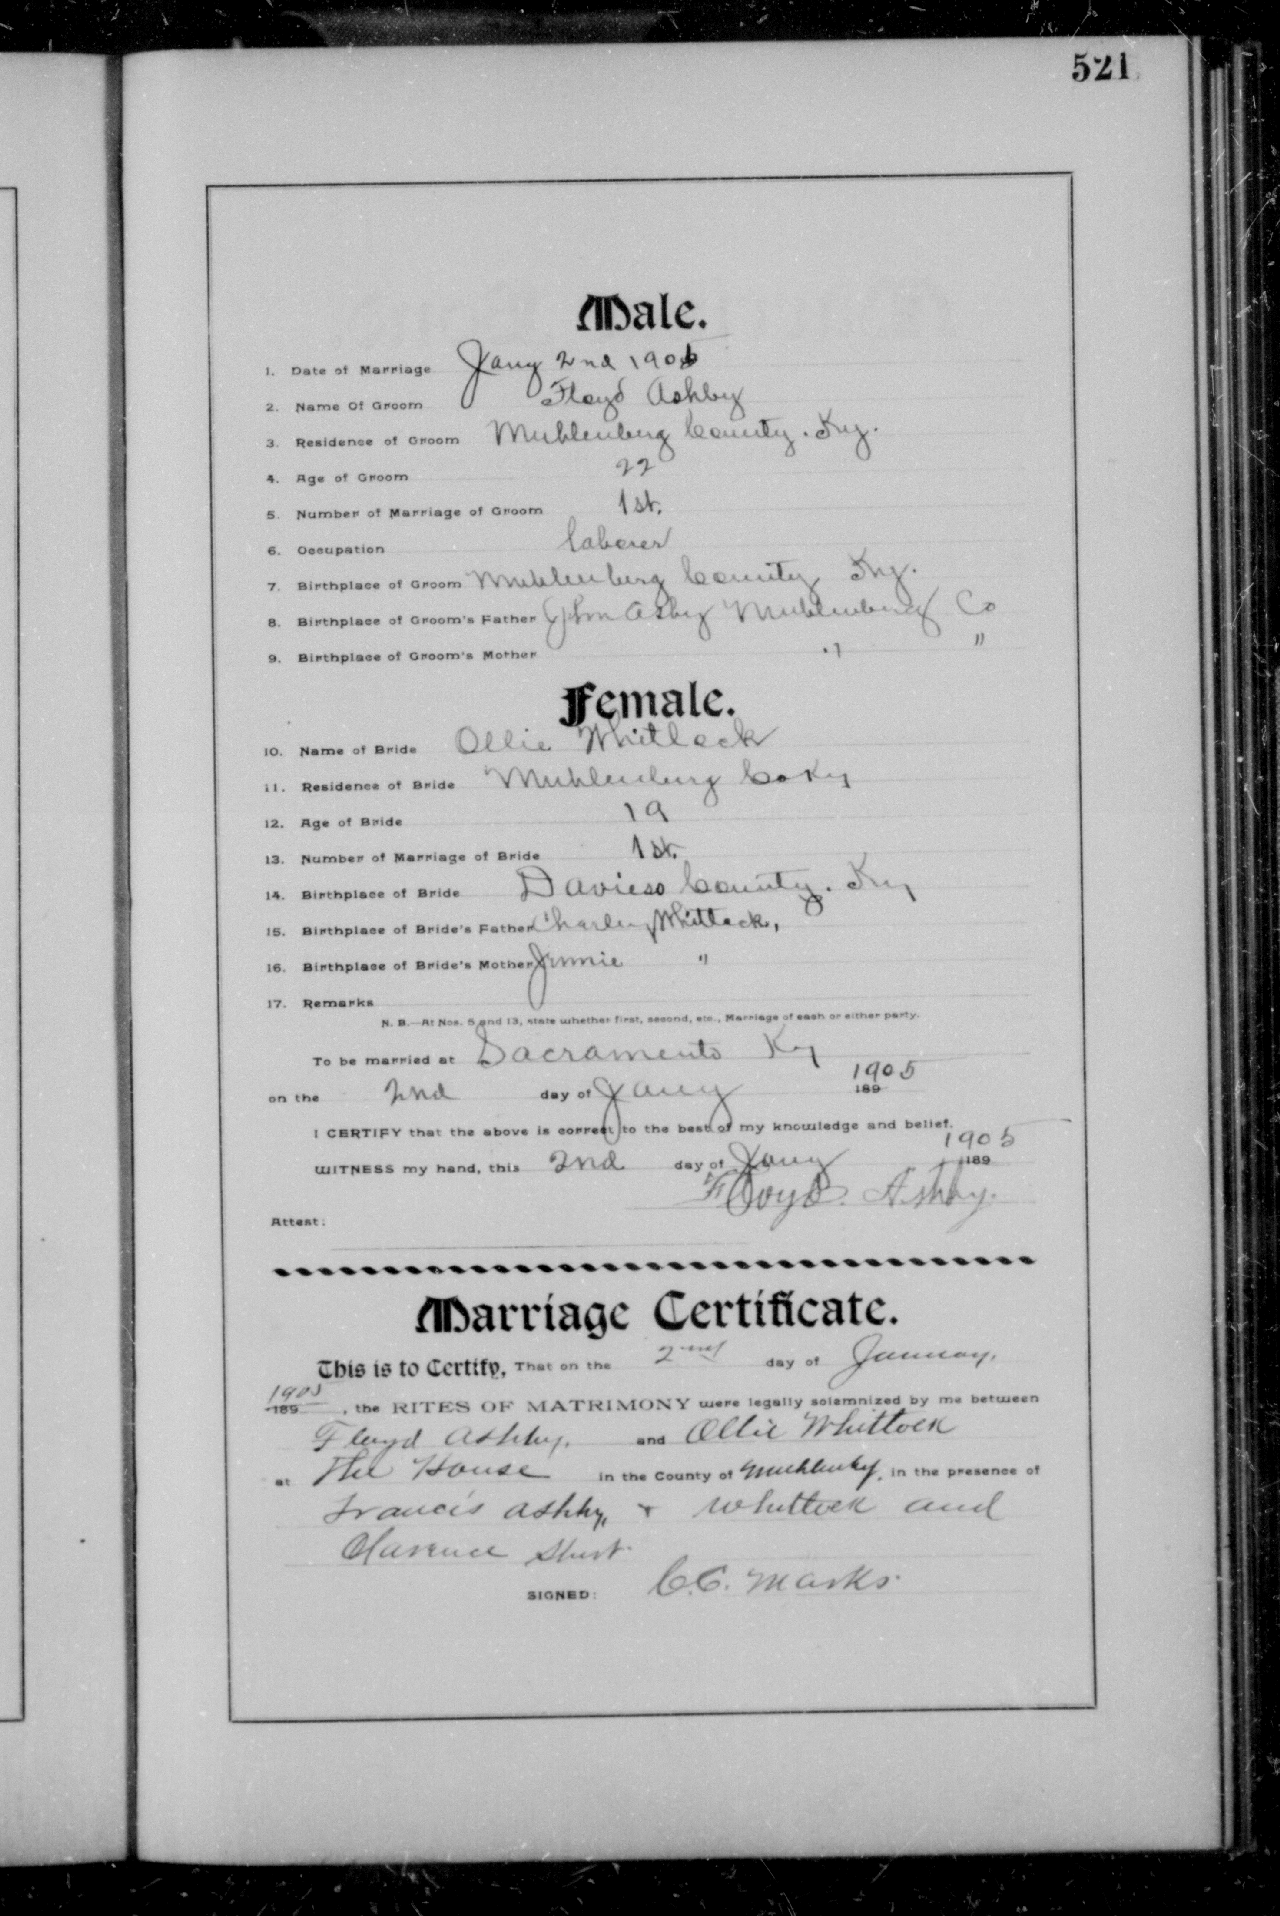 521
Male.
1. Date of Marriage Jany 2nd 1905
2. Name Of Groom Floyd Ashby
3. Residence of Groom Muhlenberg County. Ky.
4. Age of Groom 22
5. Number of Marriage of Groom 1st.
6. Occupation laborer
7. Birthplace of Groom Muhlenberg County Ky.
8. Birthplace of Groom's Father John Asby Muhlenberg Co
9. Birthplace of Groom's Mother " "
Female.
10. Name of Bride Ollie Whitlock
11. Residence of Bride Muhlenberg Co Ky
12. Age of Bride 19
13. Number of Marriage of Bride 1st.
14. Birthplace of Bride Daviess County. Ky
15. Birthplace of Bride's Father Charley Whitlock,
16. Birthplace of Bride's Mother Jennie "
17. Remarks
N. B.—At Nos. 5 and 13, state whether first, second, etc., Marriage of each or either party.
To be married at Sacramento Ky
on the 2nd day of Jany 189 1905
I CERTIFY that the above is correct to the best of my knowledge and belief.
WITNESS my hand, this 2nd day of Jany 189 1905
Floyd. Ashby.
Attest:
Marriage Certificate.
This is to Certify, That on the 2nd day of January,
189 1905, the RITES OF MATRIMONY were legally solemnized by me between
Floyd Ashby. and Ollie Whittock
at The House in the County of in the presence of
Francis Ashby, + Whittock and
Clarence
SIGNED: C.C. Marks.